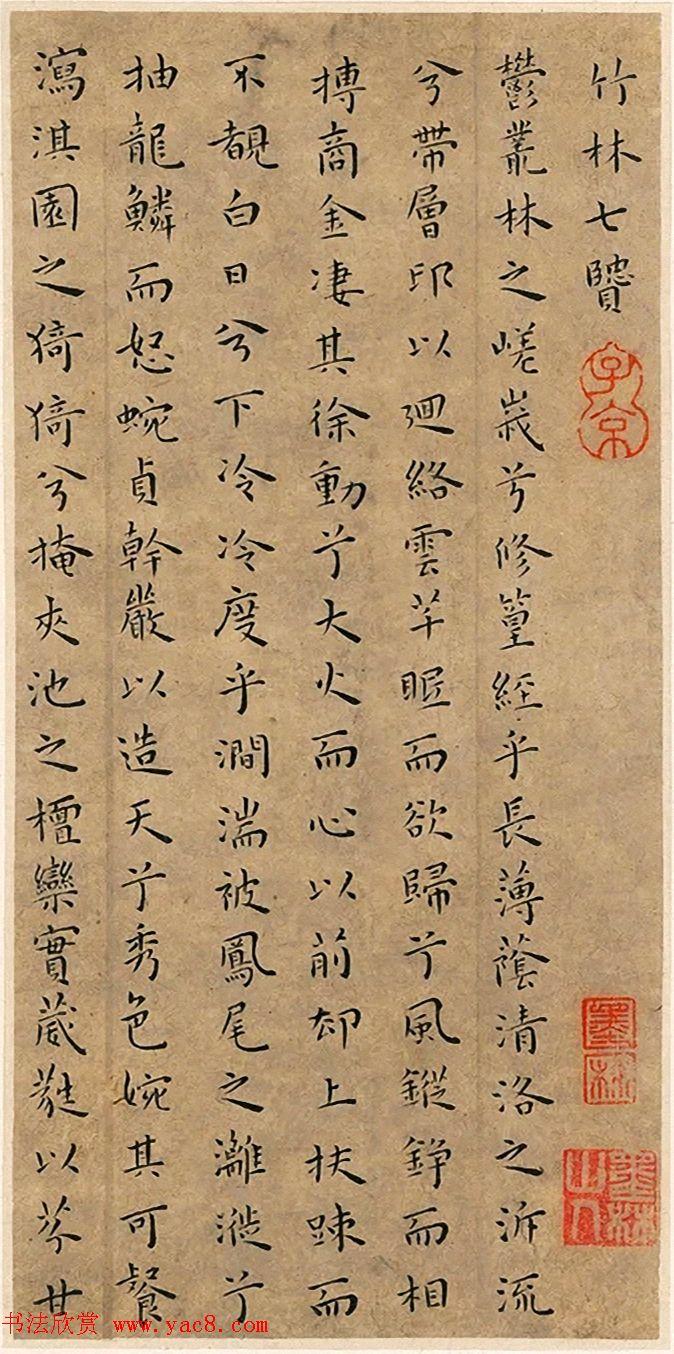 竹林七賢 子京
鬱叢林之嵯峩兮修篁經乎長薄蔭清洛之泝流
兮帶層邙以廻絡雲芊眠而欲歸兮風鏦錚而相
摶商金淒其徐動兮大火而心以前却上扶踈而
不覩白日兮下冷冷度乎澗湍被鳳尾之灕漇兮
抽龍鱗而怒蜿貞幹嚴以造天兮秀色婉其可餐
瀉淇園之猗猗兮掩夾池之檀欒實葳蕤以芬甘
墨林
書法欣赏 www.yac8.com